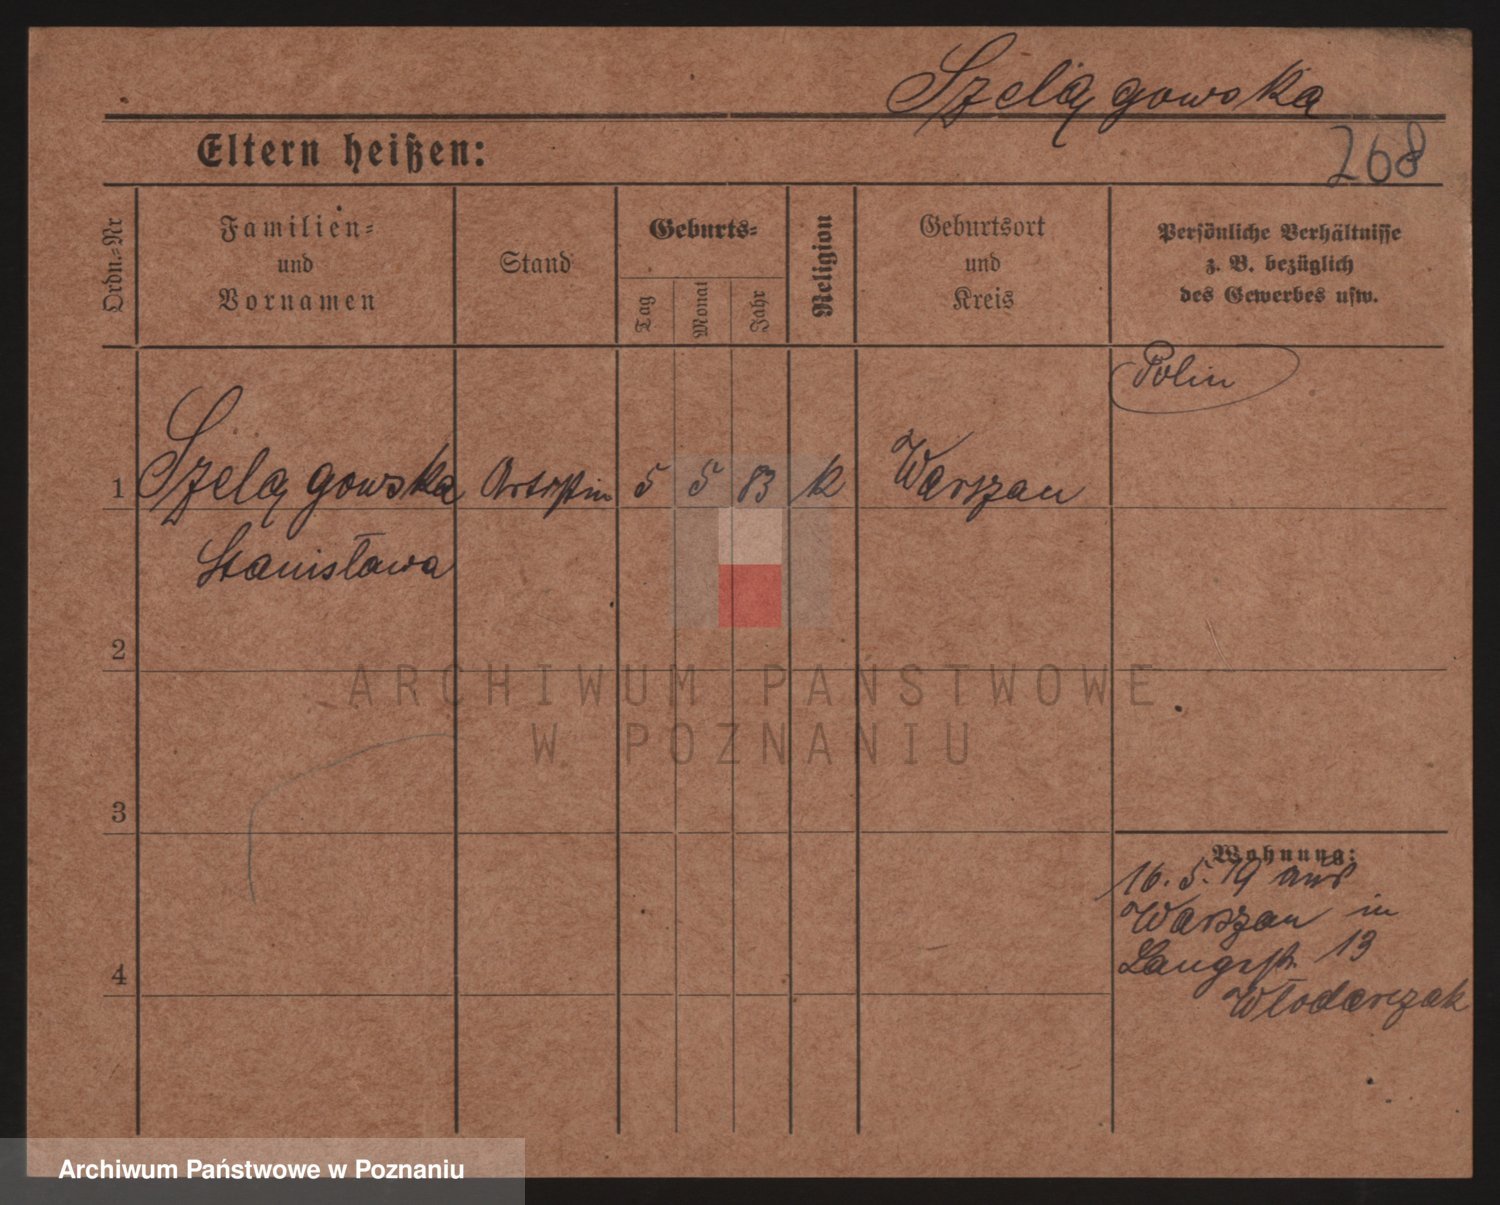 Szelągowska
Eltern heißen:
268
Ordn.-Nr
Familien-
und
Vornamen
Stand
Geburts-
Tag
Monat
Jahr
Religion
Geburtsort
und
Kreis
Persönliche Verhältnisse
z. B. bezüglich
des Gewerbes usw.
Polin
1 Szelągowska Artistin 5 5 83 k Warszau
Stanisława
2
ARCHIWUM PAŃSTWOWE
W POZNANIU
3
Wohnung:
16.5.19 aus
Warszau in
Langestr. 13
Włodarczak
4
Archiwum Państwowe w Poznaniu